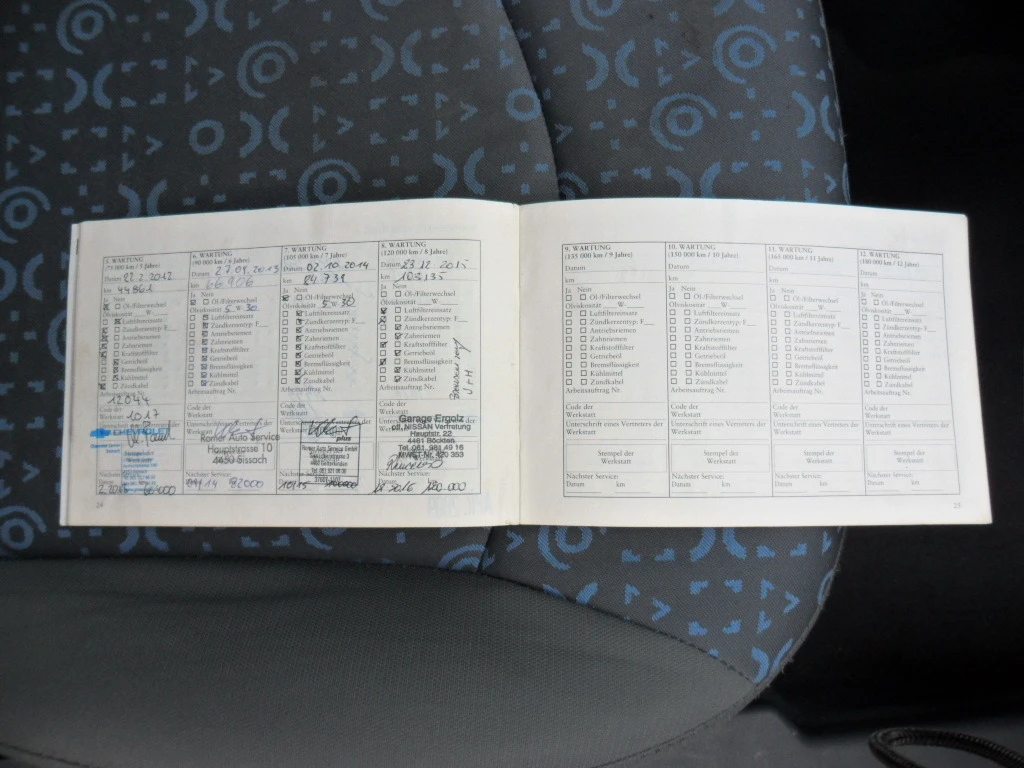 5. WARTUNG
(75 000 km / 5 Jahre)
Datum 22.2.2012
km 49861
Ja Nein
Öl-/Filterwechsel
Ölviskosität W-
Luftfiltereinsatz
Zündkerzentyp: F
Antriebsriemen
Zahnriemen
Kraftstofffilter
Getriebeöl
Bremsflüssigkeit
Kühlmittel
Zündkabel
Arbeitsauftrag Nr.
12044
Code der
Werkstatt 1017
CHEVROLET
Stempel der
Werkstatt
Nächster Service:
24
6. WARTUNG
(90 000 km / 6 Jahre)
Datum 27.09.2013
km 66906
Ja Nein
Öl-/Filterwechsel
Ölviskosität 5W-30
Luftfiltereinsatz
Zündkerzentyp: F
Antriebsriemen
Zahnriemen
Kraftstofffilter
Getriebeöl
Bremsflüssigkeit
Kühlmittel
Zündkabel
Arbeitsauftrag Nr.
Code der
Werkstatt
Unterschrift eines Vertreters der
Werkstatt
Romer Auto Service
Hauptstrasse 10
4450 Sissach
Nächster Service:
82000
7. WARTUNG
(105 000 km / 7 Jahre)
Datum 02.10.2014
km 84739
Ja Nein
Öl-/Filterwechsel
Ölviskosität 5W-30
Luftfiltereinsatz
Zündkerzentyp: F
Antriebsriemen
Zahnriemen
Kraftstofffilter
Getriebeöl
Bremsflüssigkeit
Kühlmittel
Zündkabel
Arbeitsauftrag Nr.
Code der
Werkstatt
plus
Romer Auto Service GmbH
4460 Gelterkinden
Nächster Service:
10.15 100000
8. WARTUNG
(120 000 km / 8 Jahre)
Datum 23.12.2015
km 103135
Ja Nein
Öl-/Filterwechsel
Ölviskosität W-
Luftfiltereinsatz
Zündkerzentyp: F
Antriebsriemen
Zahnriemen
Kraftstofffilter
Getriebeöl
Bremsflüssigkeit
Kühlmittel
Zündkabel
Arbeitsauftrag Nr.
Code der
Werkstatt
Garage Ergolz
off. NISSAN Vertretung
Hauptstr. 22
4461 Böckten
Tel. 061 981 49 16
MWST-Nr. 420 353
Nächster Service:
12.2016 120.000
9. WARTUNG
(135 000 km / 9 Jahre)
Datum
km
Ja Nein
Öl-/Filterwechsel
Ölviskosität W-
Luftfiltereinsatz
Zündkerzentyp: F
Antriebsriemen
Zahnriemen
Kraftstofffilter
Getriebeöl
Bremsflüssigkeit
Kühlmittel
Zündkabel
Arbeitsauftrag Nr.
Code der
Werkstatt
Unterschrift eines Vertreters der
Werkstatt
Stempel der
Werkstatt
Nächster Service:
Datum km
10. WARTUNG
(150 000 km / 10 Jahre)
Datum
km
Ja Nein
Öl-/Filterwechsel
Ölviskosität W-
Luftfiltereinsatz
Zündkerzentyp: F
Antriebsriemen
Zahnriemen
Kraftstofffilter
Getriebeöl
Bremsflüssigkeit
Kühlmittel
Zündkabel
Arbeitsauftrag Nr.
Code der
Werkstatt
Unterschrift eines Vertreters der
Werkstatt
Stempel der
Werkstatt
Nächster Service:
Datum km
11. WARTUNG
(165 000 km / 11 Jahre)
Datum
km
Ja Nein
Öl-/Filterwechsel
Ölviskosität W-
Luftfiltereinsatz
Zündkerzentyp: F
Antriebsriemen
Zahnriemen
Kraftstofffilter
Getriebeöl
Bremsflüssigkeit
Kühlmittel
Zündkabel
Arbeitsauftrag Nr.
Code der
Werkstatt
Unterschrift eines Vertreters der
Werkstatt
Stempel der
Werkstatt
Nächster Service:
Datum km
12. WARTUNG
(180 000 km / 12 Jahre)
Datum
km
Ja Nein
Öl-/Filterwechsel
Ölviskosität W-
Luftfiltereinsatz
Zündkerzentyp: F
Antriebsriemen
Zahnriemen
Kraftstofffilter
Getriebeöl
Bremsflüssigkeit
Kühlmittel
Zündkabel
Arbeitsauftrag Nr.
Code der
Werkstatt
Unterschrift eines Vertreters der
Werkstatt
Stempel der
Werkstatt
Nächster Service:
Datum km
25